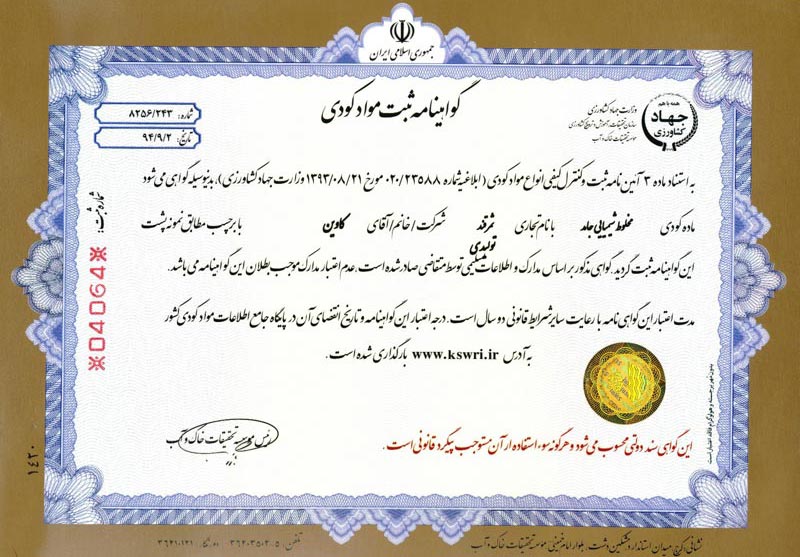 جمهوری اسلامی ایران
گواهینامه ثبت مواد کودی
شماره: ۸۲۵۶/۲۴۳
تاریخ: ۹۴/۹/۲
همه با هم
جهاد
کشاورزی
وزارت جهاد کشاورزی
سازمان تحقیقات، آموزش و ترویج کشاورزی
موسسه تحقیقات خاک و آب
به استناد ماده ۳ آئین نامه ثبت و کنترل کیفی انواع مواد کودی (ابلاغیه شماره ۰۲۰/۲۳۵۸۸ مورخ ۱۳۹۳/۰۸/۲۱ وزارت جهاد کشاورزی)، بدینوسیله گواهی می شود
ماده کودی مخلوط شیمیایی جامد با نام تجاری ثمر قند تولیدی شرکت / خانم / آقای کاوین با برچسب مطابق نمونه پشت
این گواهینامه ثبت گردید. گواهی مذکور بر اساس مدارک و اطلاعات تسلیمی توسط متقاضی صادر شده است. عدم اعتبار مدارک موجب بطلان این گواهینامه می باشد.
مدت اعتبار این گواهی نامه با رعایت سایر شرایط قانونی دو سال است. درجه اعتبار این گواهینامه و تاریخ انقضای آن در پایگاه جامع اطلاعات مواد کودی کشور
به آدرس www.kswri.ir بارگذاری شده است.
شماره ثبت:
※04064※
رئیس موسسه تحقیقات خاک و آب
این گواهی سند دولتی محسوب می شود و هرگونه سوء استفاده از آن مستوجب پیگرد قانونی است.
بدون مهر برجسته و هولوگرام فاقد اعتبار است
۱۴۲۰
نشانی: کرج، میدان استاندارد، مشکین دشت، بلوار امام خمینی، موسسه تحقیقات خاک و آب